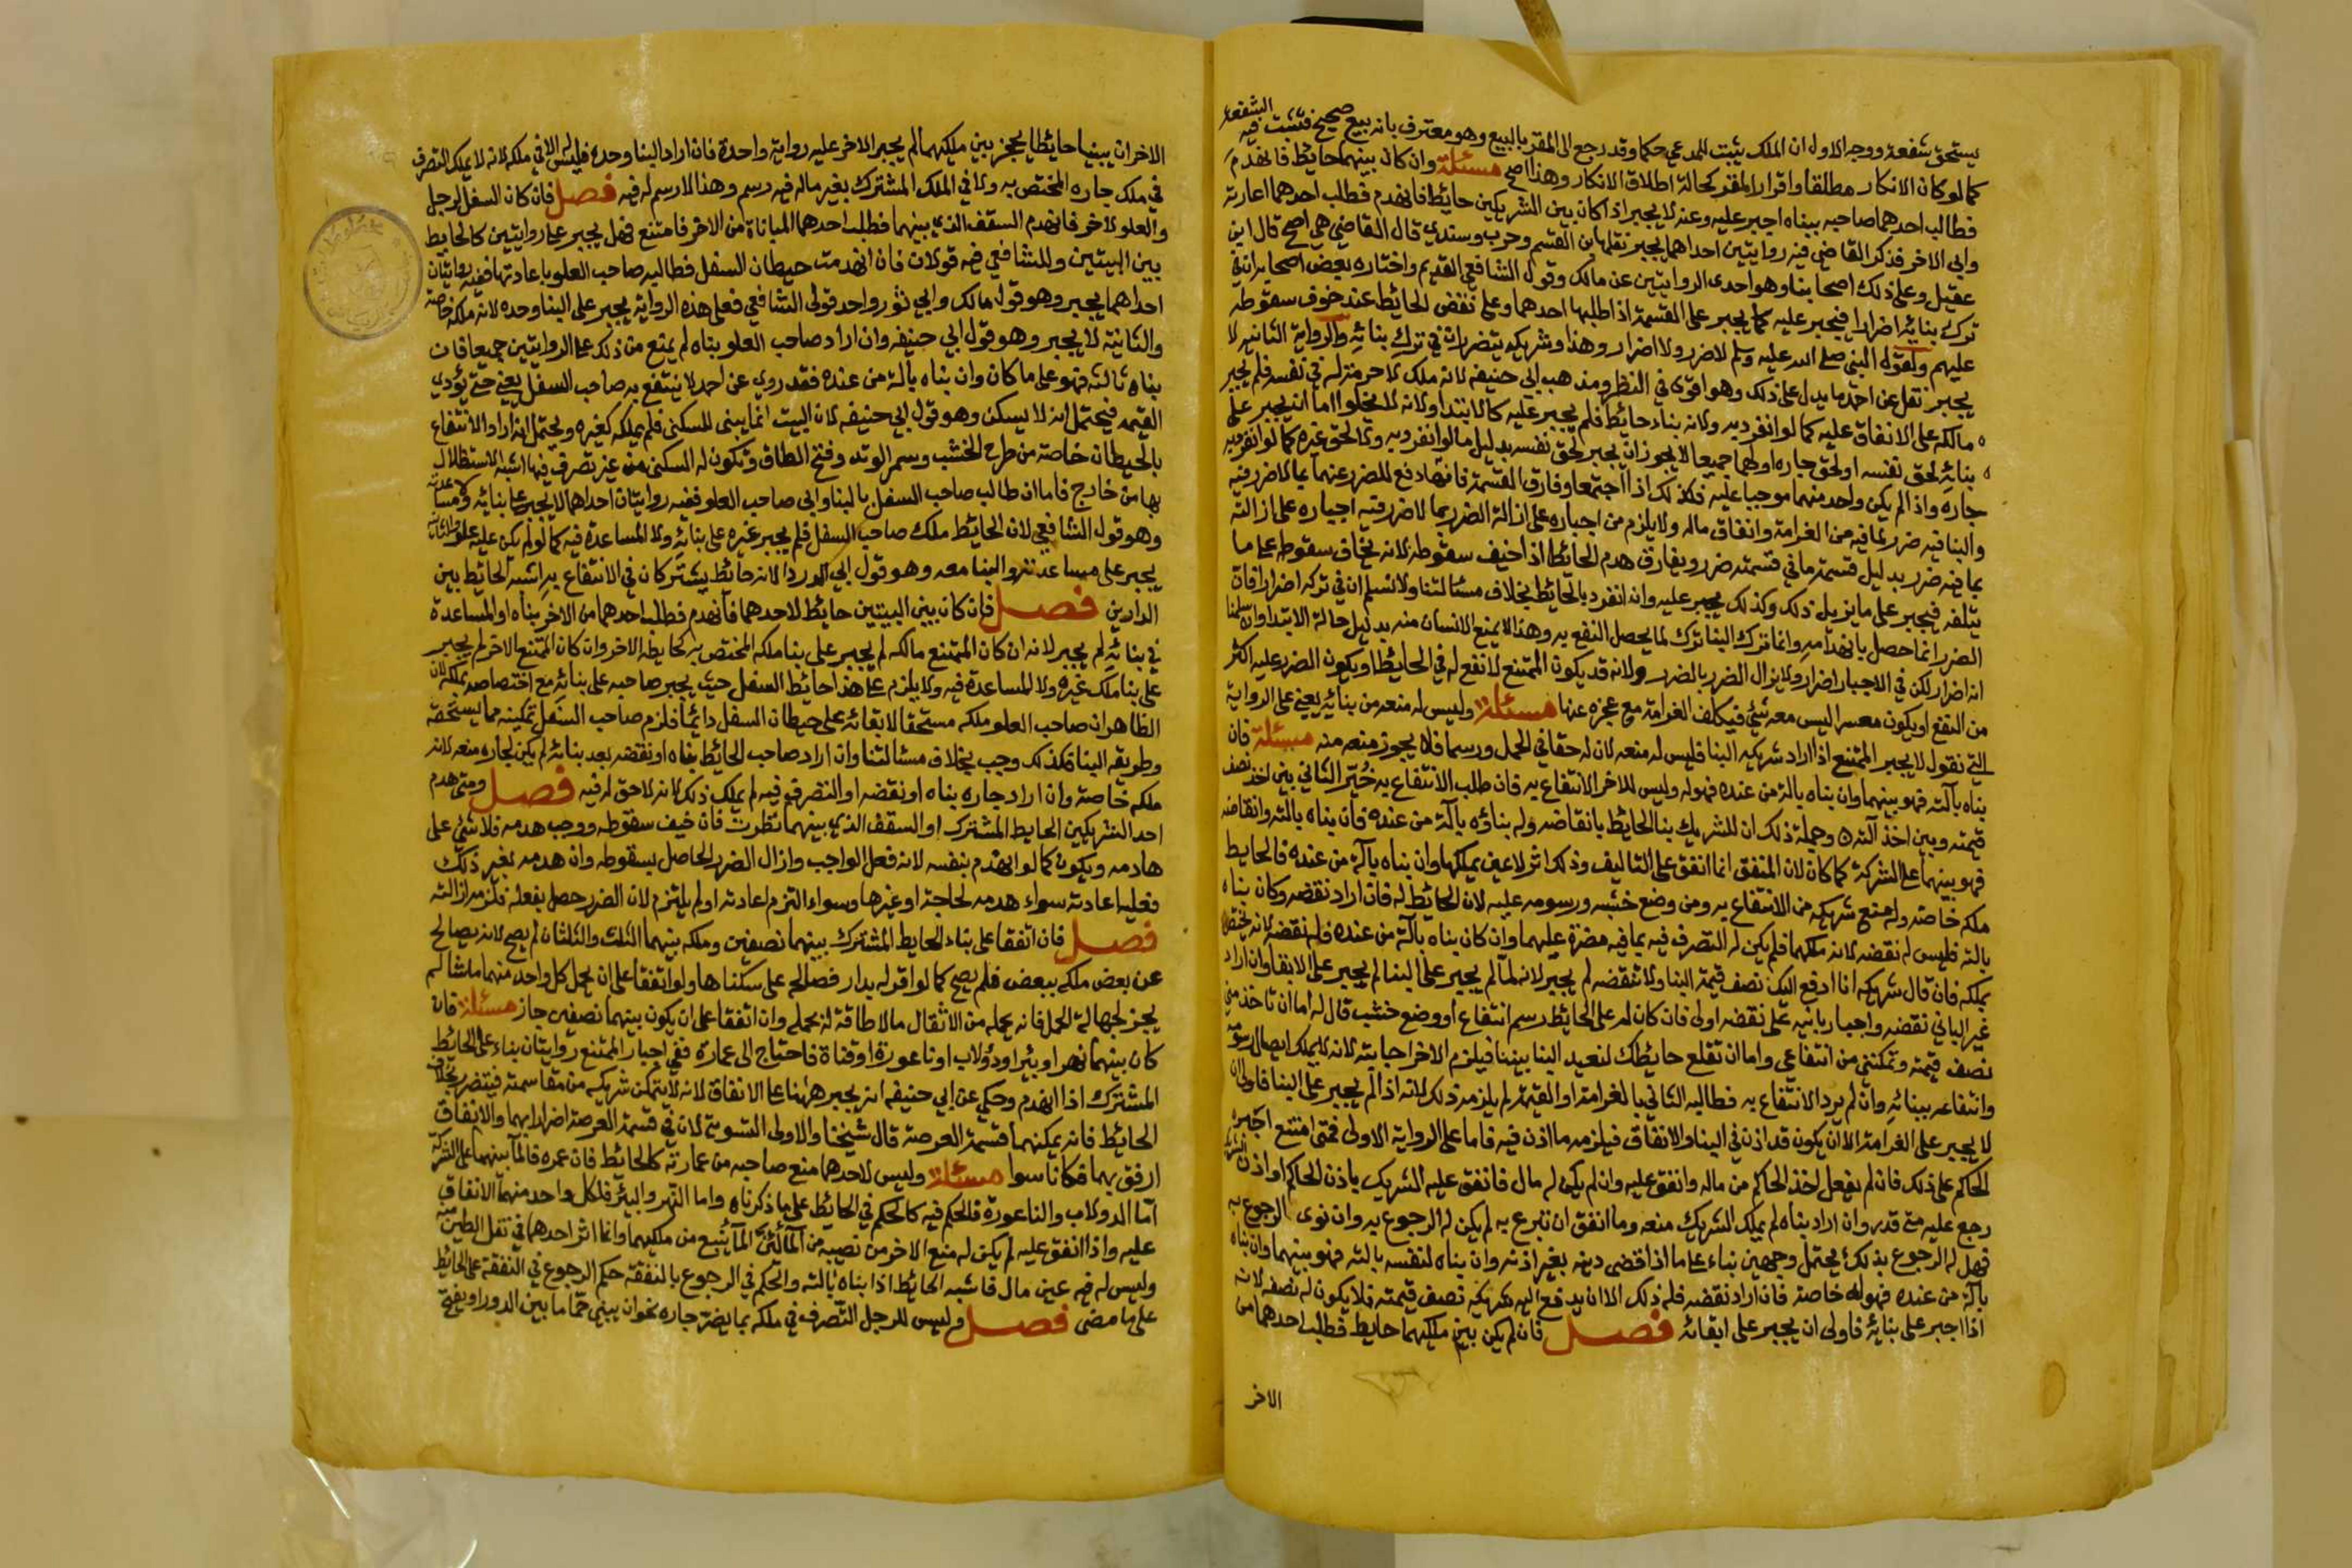 يستحق شفعة ووجه الاول ان الملك يثبت للمدعي حكما وقد رجع الى المقر بالبيع وهو معترف بانه بيع صحيح فتثبت فيه الشفعة
كما لو كان الانكار مطلقا واقرار المقر كحالة اطلاق الانكار وهذا اصح مسئلة وان كان بينهما حائط فانهدم
فطالب احدهما صاحبه ببناه اجبر عليه وعنه لا يجبر اذا كان بين الشريكين حائط فانهدم فطلب احدهما اعادته
وابي الاخر فذكر القاضي فيه روايتين احداهما يجبر نقلها ابن القسم وحرب وسندي قال القاضي هي اصح قال ابن
عقيل وعلى ذلك اصحابنا وهو احدى الروايتين عن مالك وقول الشافعي القديم واختاره بعض اصحابه لانه في
ترك بنائه اضرارا فيجبر عليه كما يجبر على القسمة اذا طلبها احدهما وعلى نقض الحائط عند خوف سقوطه
عليهم ولقوله النبي صلى الله عليه وسلم لا ضرر ولا اضرار وهذا وشريكه يتضرران في ترك بنائه والرواية الثانيه لا
يجبر نقل عن احمد ما يدل على ذلك وهو اقوى في النظر ومذهب ابي حنيفه لانه ملك لا حرمة له في نفسه فلم يجبر
مالكه على الانفاق عليه كما لو انفرد به ولانه بناء حائط فلم يجبر عليه كالابتدا ولانه لا يخلوا اما ان يجبر على
بنائه لحق نفسه او لحق جاره او لهما جميعا لا يجوز ان يجبر لحق نفسه بدليل ما لو انفرد به ولا لحق غيره كما لو انفرد به
جاره واذا لم يكن واحد منهما موجبا عليه فكذلك اذا اجتمعا وفارق القسمة فانها دفع للضرر عنهما بما لا ضرر فيه
والبنا فيه ضرر لما فيه من الغرامة وانفاق ماله ولا يلزم من اجباره على ازالة الضرر بما لا ضرر فيه اجباره على ازالته
بما فيه ضرر بدليل قسمة ما في قسمته ضرر ويفارق هدم الحائط اذا خيف سقوطه لانه يخاف سقوطه على ما
يتلفه فيجبر على ما يزيل ذلك وكذلك يجبر عليه وان انفرد بالحائط بخلاف مسئالتنا ولا نسلم ان في تركه اضرارا فان
الضرر انما حصل بانهدامه وانما ترك البنا ترك لما يحصل النفع به وهذا لا يمنع الانسان منه بدليل حالة الابتدا وان سلمنا
انه اضرار لكن في الاجبار اضرار ولا يزال الضرر بالضرر ولانه قد يكون الممتنع لا نفع له في الحائط او يكون الضرر عليه اكثر
من النفع او يكون معسرا ليس معه شئ فيكلف الغرامة مع عجزه عنها مسئلة وليس له منعه من بنائه يعني على الرواية
التي نقول لا يجبر الممتنع اذا اراد شريكه البنا فليس له منعه لان له حقا في الحمل ورسما فلا يجوز منعه منه مسئلة فان
بناه بآلته فهو بينهما وان بناه بالة من عنده فهو له وليس للاخر الانتفاع به فان طلب الانتفاع به خير الثاني بين اخذ نصف
قيمته وبين اخذ آلته وجملة ذلك ان للشريك بنا الحائط بانقاضه وله بناؤه بآلة من عنده فان بناه بالته وانقاضه
فهو بينهما على الشركة كما كان لان المنفق انما انفق على التاليف وذلك اثر لا عين يملكها وان بناه بآلة من عنده فالحايط
ملكه خاصة وله منع شريكه من الانتفاع به ومن وضع خشبه ورسومه عليه لان الحائط له فان اراد نقضه وكان بناه
بالته فليس له نقضه لانه ملكهما فلم يكن له التصرف فيه بما فيه مضرة عليهما وان كان بناه بآلة من عنده فله نقضه لانه يختص
بملكه فان قال شريكه انا ادفع اليك نصف قيمة البنا ولا تنقضه لم يجبر لانه لما لم يجبر على البنا لم يجبر على الابقا وان اراد
غير الباني نقضه واجبار بانيه على نقضه اولى فان كان له على الحائط رسم انتفاع او وضع خشب قال له اما ان تاخذ مني
نصف قيمته وتمكنني من انتفاعي واما ان تقلع حائطك لنعيد البنا بيننا فيلزم الاخر اجابته لانه لا يملك ابطال رسومه
وانتفاعه ببنائه وان لم يرد الانتفاع به فطالبه الثاني بالغرامة او القيمة لم يلزمه ذلك لانه اذا لم يجبر على البنا فاولى ان
لا يجبر على الغرامة الا ان يكون قد اذن في البنا والانفاق فيلزمه ما اذن فيه فاما على الرواية الاولى فمتى امتنع اجبره
الحاكم على ذلك فان لم يفعل اخذ الحاكم من ماله وانفق عليه وان لم يكن له مال فانفق عليه الشريك باذن الحاكم او اذن الشريك
رجع عليه متى قدر وان اراد بناه لم يملك الشريك منعه وما انفق ان تبرع به لم يكن له الرجوع به وان نوى الرجوع به
فهل له الرجوع بذلك يحتمل وجهين بناء على ما اذا قضى دينه بغير اذنه وان بناه لنفسه بالته فهو بينهما وان بناه
بآلة من عنده فهو له خاصة فان اراد نقضه فله ذلك الا ان يدفع اليه شريكه نصف قيمته فلا يكون له نقضه لانه
اذا اجبر على بنائه فاولى ان يجبر على ابقائه فصل فان لم يكن بين ملكيهما حايط فطلب احدهما من
الاخر
الاخر ان يبنيا حائطا يحجز بين ملكيهما لم يجبر الاخر عليه رواية واحدة فان اراد البنا وحده فليس له الا في ملكه لانه لا يملك التصرف
في ملك جاره المختص به ولا في الملك المشترك بغير ماله فيه رسم وهذا لا رسم له فيه فصل فان كان السفل لرجل
والعلو لاخر فانهدم السقف الذي بينهما فطلب احدهما المباناة من الاخر فامتنع فهل يجبر على روايتين كالحايط
بين البيتين وللشافعي فيه قولان فان انهدمت حيطان السفل فطالبه صاحب العلو باعادتها ففيه روايتان
احداهما يجبر وهو قول مالك وابي ثور واحد قولى الشافعي فعلى هذه الرواية يجبر على البنا وحده لانه ملكه خاصة
والثانية لا يجبر وهو قول ابي حنيفه وان اراد صاحب العلو بناه لم يمنع من ذلك على الروايتين جميعا فان
بناه بالته فهو على ما كان وان بناه بالة من عنده فقد روي عن احمد لا ينتفع به صاحب السفل يعني حتى يؤدي
القيمه فيحتمل انه لا يسكن وهو قول ابي حنيفه لان البيت انما يبنى للسكنى فلم يملكه كغيره ويحتمل انه اراد الانتفاع
بالحيطان خاصة من طرح الخشب وسمر الوتد وفتح الطاق وتكون له السكنى من غير تصرف فيها اشبه الاستظلال
بها من خارج فاما ان طالب صاحب السفل بالبنا وابى صاحب العلو ففيه روايتان احداهما لا يجبر على بنائه ولا مساعدته
وهو قول الشافعي لان الحايط ملك صاحب السفل فلم يجبر غيره على بنائه ولا المساعدة فيه كما لو لم يكن عليه علو والثانية
يجبر على مساعدته والبنا معه وهو قول ابي الدردا لانه حائط يشتركان في الانتفاع به اشبه الحائط بين
الدارين فصل فان كان بين البيتين حائط لاحدهما فانهدم فطلب احدهما من الاخر بناه او المساعدة
في بنائه لم يجبر لانه ان كان الممتنع مالكه لم يجبر على بنا ملكه المختص به كحايط الاخر وان كان الممتنع الاخر لم يجبر
على بنا ملك غيره ولا المساعدة فيه ولا يلزم على هذا حائط السفل حيث يجبر صاحبه على بنائه مع اختصاصه بملكه لان
الظاهر ان صاحب العلو ملكه مستحقا لابقائه على حيطان السفل دائما فلزم صاحب السفل تمكينه مما يستحقه
وطريقه البنا فلذلك وجب بخلاف مسئالتنا وان اراد صاحب الحائط بناه او نقضه بعد بنائه لم يكن لجاره منعه لانه
ملكه خاصة وان اراد جاره بناه او نقضه او التصرف فيه لم يملك ذلك لانه لا حق له فيه فصل ومتى هدم
احد الشريكين الحايط المشترك او السقف الذي بينهما نظرت فان خيف سقوطه ووجب هدمه فلا شئ على
هادمه ويكون كما لو انهدم بنفسه لانه فعل الواجب وازال الضرر الحاصل بسقوطه وان هدمه لغير ذلك
فعليه اعادته سواء هدمه لحاجة او غيرها وسواء التزم اعادته او لم يلتزم لان الضرر حصل بفعله فلزمه ازالته
فصل فان اتفقا على بناء الحايط المشترك بينهما نصفين وملكه بينهما الثلث والثلثان لم يصح لانه يصالح
عن بعض ملكه ببعض فلم يصح كما لو اقر له بدار فصالحه على سكناها ولو اتفقا على ان يحمل كل واحد منهما ما شا لم
يجز لجهالة الحمل فانه يحمله من الاثقال مالا طاقة له بحمله وان اتفقا على ان يكون بينهما نصفين جاز مسئلة فان
كان بينهما نهر او بئر او دولاب او ناعورة او قناة فاحتاج الى عمارة ففي اجبار الممتنع روايتان بناء على الحائط
المشترك اذا انهدم وحكي عن ابي حنيفه انه يجبر هاهنا على الانفاق لانه لا يتمكن شريكه من مقاسمته فيتضرر بخلاف
الحائط فانه يمكنهما قسمة العرصة قال شيخنا والاولى التسوية لان في قسمة العرصة اضرارا بهما والانفاق
ارفق بهما فكانا سوا مسئلة وليس لاحدهما منع صاحبه من عمارته كالحائط فان عمره فالما بينهما على الشركة
اما الدولاب والناعورة فالحكم فيه كالحكم في الحائط على ما ذكرناه واما النهر والبئر فلكل واحد منهما الانفاق
عليه واذا انفق عليه لم يكن له منع الاخر من نصيبه من الما لان الما ينبع من ملكيهما وانما اثر احدهما في نقل الطين منه
وليس له فيه عين مال فاشبه الحائط اذا بناه بالته والحكم في الرجوع بالنفقة حكم الرجوع في النفقة على الحائط
على ما مضى فصل وليس للرجل التصرف في ملكه بما يضر جاره نحو ان يبني حماما بين الدور او يفتح